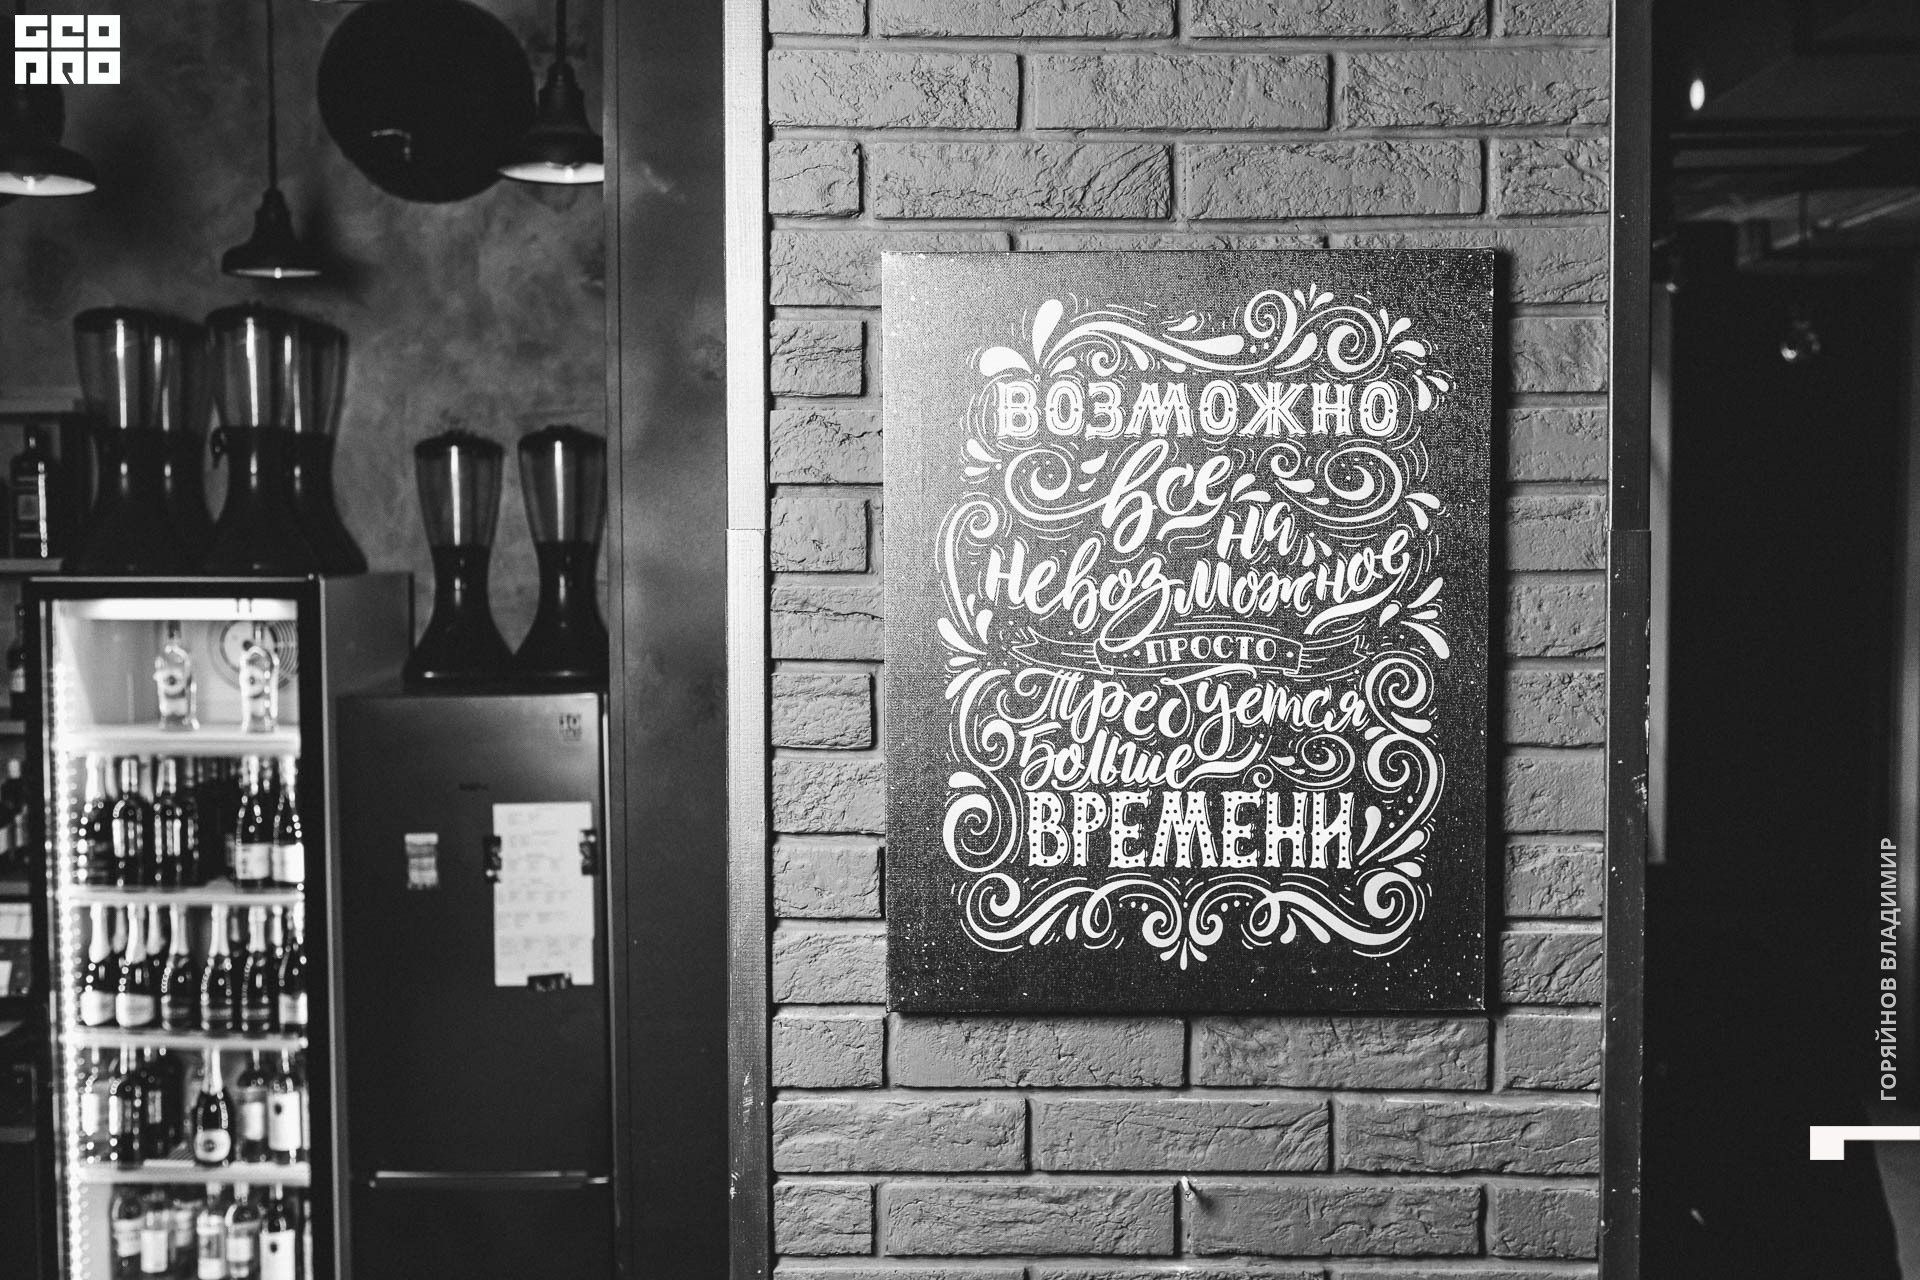 GEO
PRO
ВОЗМОЖНО
все
на
невозможное
ПРОСТО
требуется
больше
ВРЕМЕНИ
ГОРЯЙНОВ ВЛАДИМИР